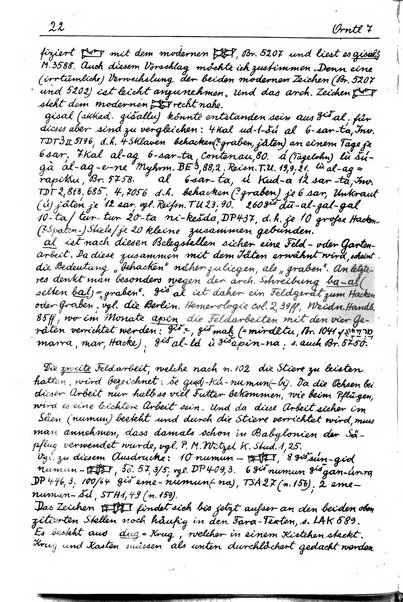 22 Orntl 7
fiziert mit dem modernen , Br. 5207 und liest es gisal,
M.3588. Auch diesem Vorschlag möchte ich zustimmen. Denn eine
(irrtümliche) Verwechselung der beiden modernen Zeichen (Br. 5207
und 5202) ist leicht anzunehmen. Und das arch. Zeichen
steht dem modernen recht nahe.
gisal (akkad. gišallu) könnte entstanden sein aus giš al. für
dieses aber sind zu vergleichen: 4 kal ud-1-šú al 6-sar-ta, Inv.
5196, d.h. 4 Sklaven behacken (? graben, jäten) an einem Tage je
6 sar, 7 kal al-ag 6-sar-ta, Contenau, 80. á (Tagelohn) lú šú-
gà al-ag-e-ne Myhrm. BE 3, 88,2. Reisn. T.U. 19,9.21. al-ag=
rapiku, Br. 5758. al 6 sar-ta, ú Kud-a 12 sar-ta, Inv.
TDT 2, 813, 685. 4,7056 d.h. behacken (? graben) je 6 sar, Unkraut
(ú) jäten je 12 sar, vgl. Reisn. T.U. 23.90. 260 giš dù-al-gal-gal
10-ta/ tur-tur 20-ta DP 437, d.h. je 10 große Hacken-
(? Spaten-) Stiele/ je 20 kleine zusammen gebunden.
al ist nach diesen Belegstellen sicher eine Feld- oder Garten-
arbeit. Da diese zusammen mit dem Jäten erwähnt wird, scheint
die Bedeutung „behacken" näher zu liegen, als „graben". An letzte-
res denkt man besonders wegen der arch. Schreibung ba-al (
selten bal) = „graben". giš al ist daher ein Feldgerät zum Hacken
oder Graben, vgl. die Berlin. Hemerologie Sol. 2, 39ff, Weidn. Handb.
85ff, wo im Monate apin die Feldarbeiten mit den vier Ge-
räten verrichtet werden: giš giš mah (= mirdêtu, Br. 1041,
marra, mar, Hacke), giš al-ld ù giš apin-na; s. auch Br. 5750.
Die zweite Feldarbeit, welche nach n. 102 die Stiere zu leisten
hatten, wird bezeichnet: še gud-kú-numun(-bi). Da die Ochsen bei
dieser Arbeit nur halb so viel Futter bekommen, wie beim Pflügen,
wird es eine leichtere Arbeit sein. Und da diese Arbeit sicher im
Säen (numun) besteht und durch die Stiere verrichtet wird, mus
man annehmen, dass damals schon in Babylonien der Sä-
pflug verwendet wurde, vgl. P. M. Witzel K. Stud. 1,25.
Vgl. zu diesem Ausdrucke: 10 numun , 8 giš šún-gid
numun , So. 57, 3/5, vgl. DP 409,3. 6 giš numun giš gan-ùr-ra
DP 446,3, 100/64 giš eme-numun(-na), TSA 27 (n. 156); 2 eme-
numun-šú, STH 1,49 (n. 159).
Das Zeichen findet sich bis jetzt außer an den beiden oben
zitierten Stellen noch häufig in den Fara-Texten, s. LAK 589.
Es besteht aus dug = Krug, welcher in einem Kästchen steckt.
Krug und Kasten müssen als unten durchlöchert gedacht werden